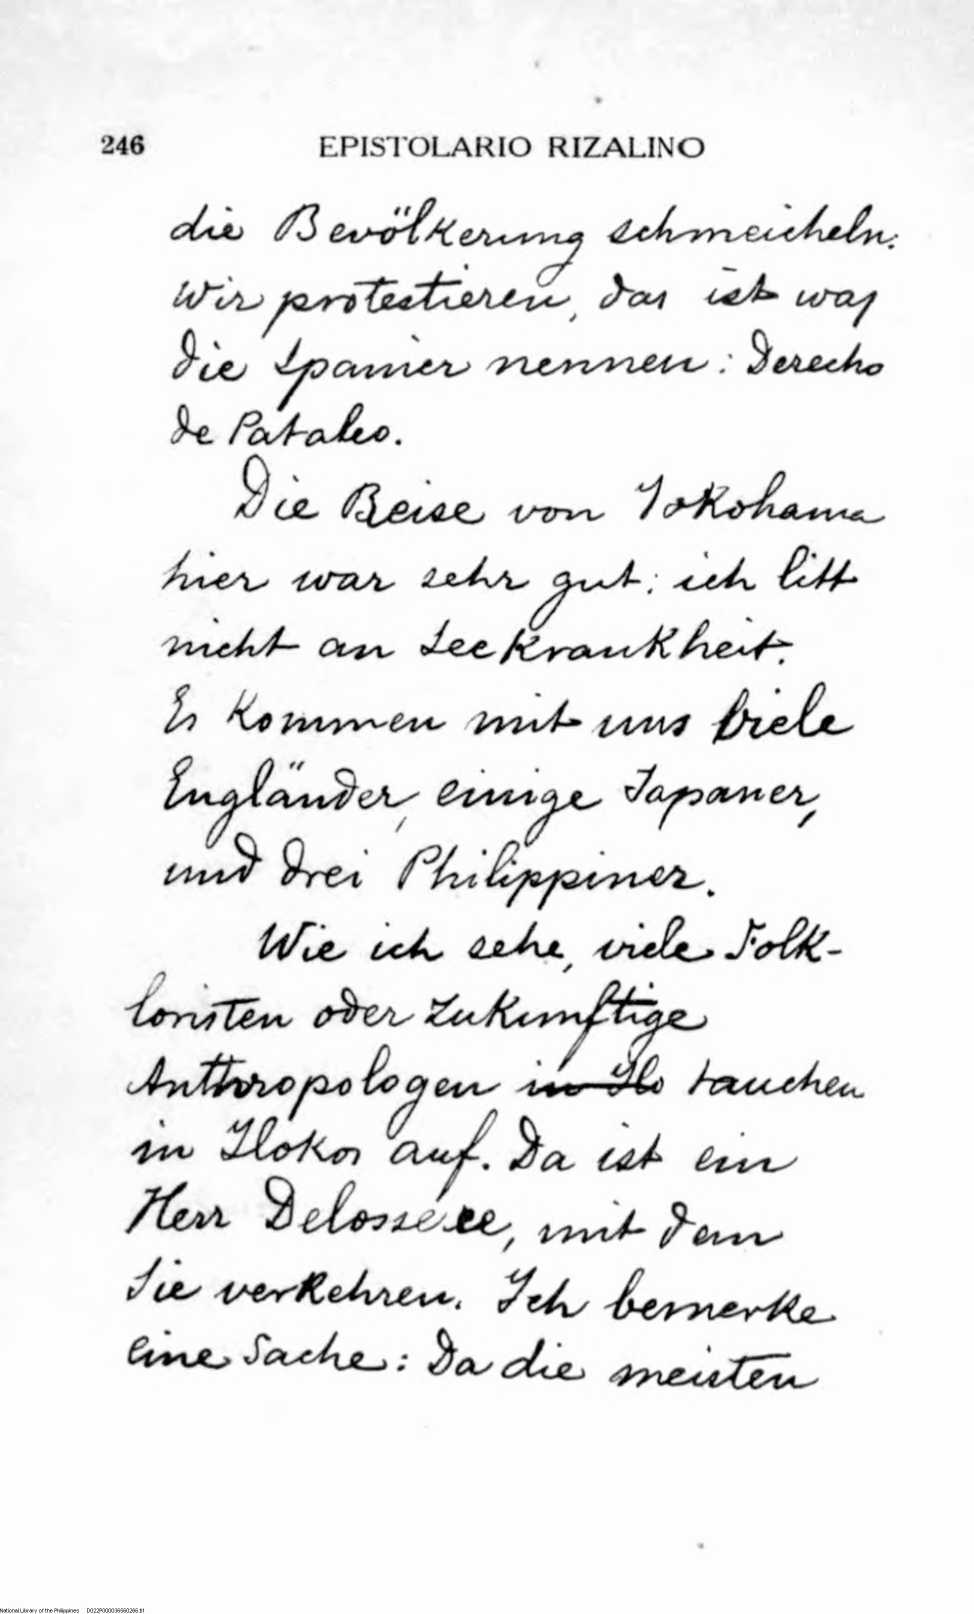 246 EPISTOLARIO RIZALINO
die Bevölkerung schmeicheln.
Wir protestieren, das ist was
die Spanier nennen: Derecho
de Pataleo.
Die Reise von Yokohama
hier war sehr gut; ich litt
nicht an Seekrankheit.
Es kommen mit uns viele
Engländer, einige Japaner,
und drei Philippiner.
Wie ich sehe, viele Folk-
loristen oder zukunftige
Anthropologen in Ilo tauchen
in Ilokos auf. Da ist ein
Herr Delosserre, mit dem
Sie verkehren. Ich bemerke
eine Sache: Da die meisten
National Library of the Philippines